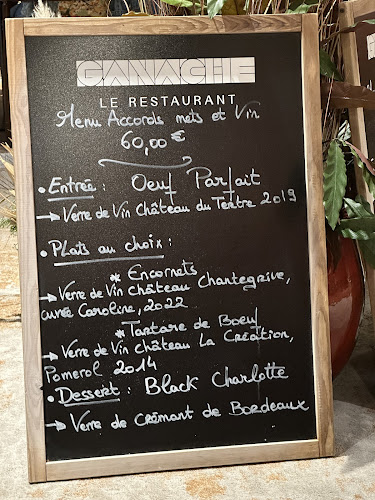 GANACHE
LE RESTAURANT
Menu Accords mets et Vin
60,00 €
• Entrée : Oeuf Parfait
→ Verre de Vin Château du Tertre 2019
• Plats au choix :
* Encornets
→ Verre de Vin Château Chantegrive,
cuvée Caroline, 2022
* Tartare de Boeuf
→ Verre de Vin Château La Création,
Pomerol 2014
• Dessert : Black Charlotte
→ Verre de Crémant de Bordeaux